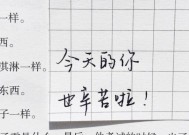 一样。
西。
淇淋一样。
东西。
子一样。
今天的你
也辛苦啦！